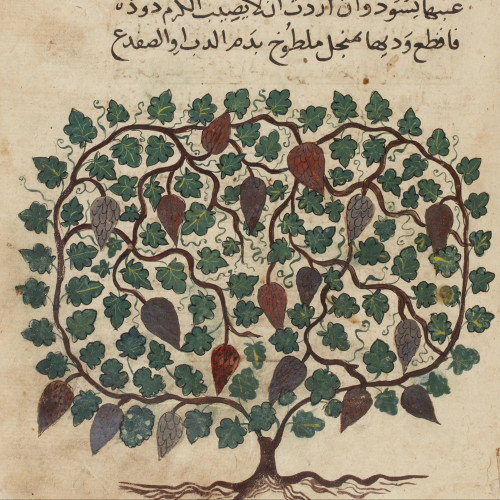 عنبها يسود وان اردت ان لا يصيب الكرم دوده
فاقطع وديها بمنجل ملطوخ بدم الدب او الضفدع